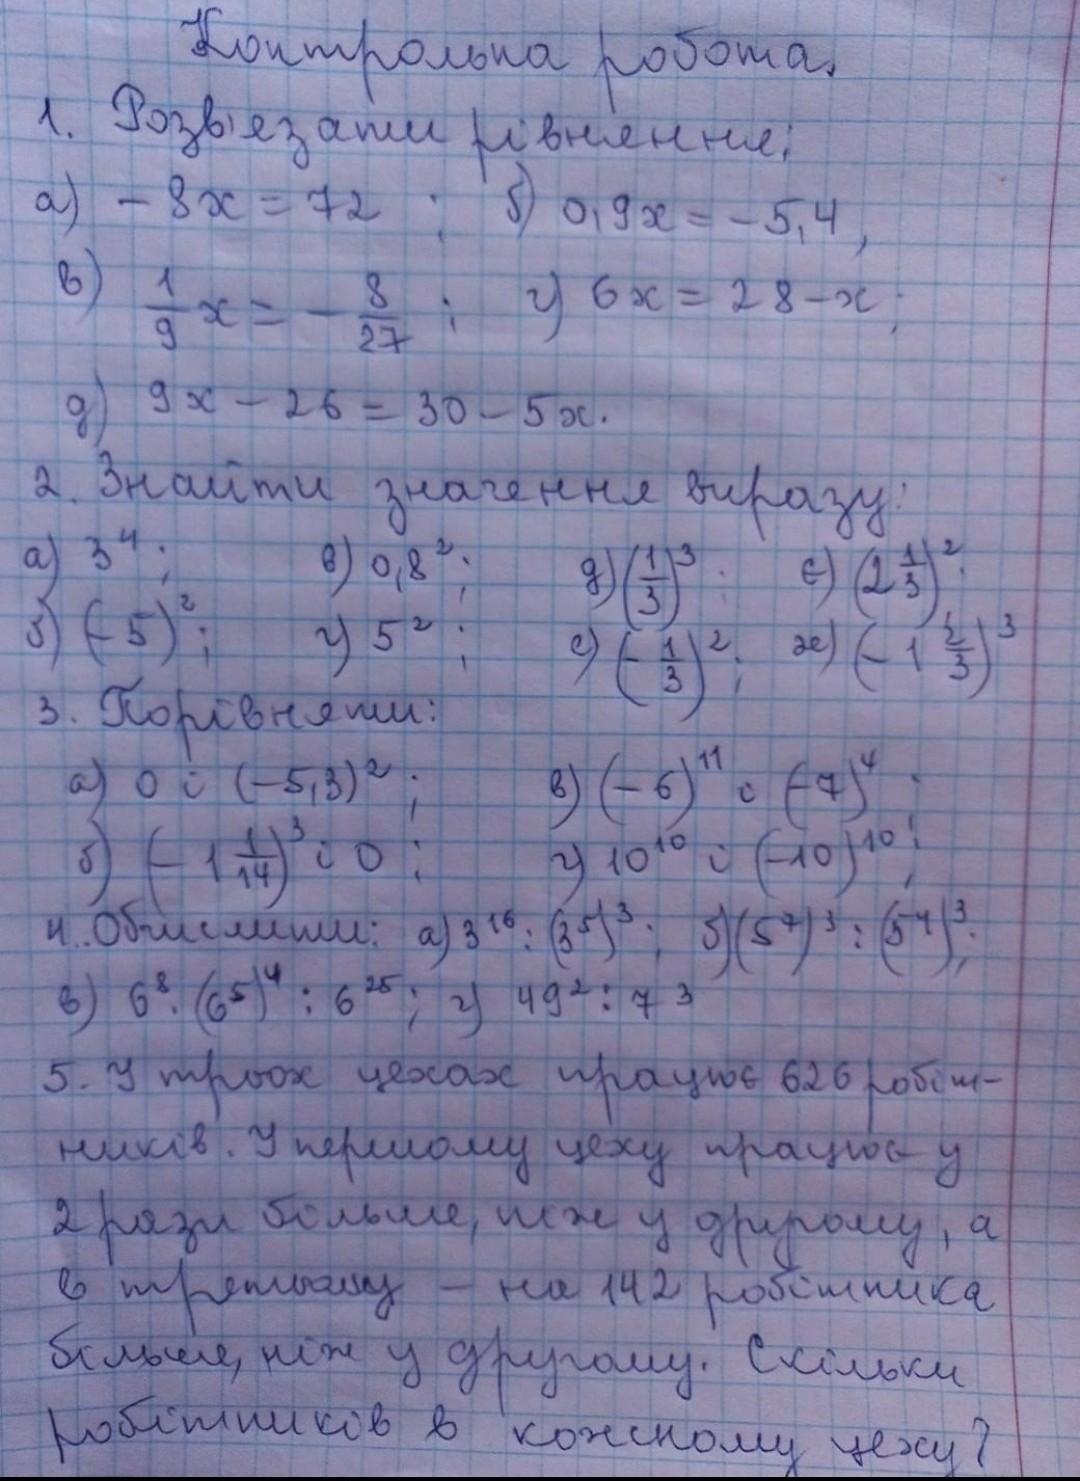 Контрольна робота.
1. Розв'язати рівняння:
а) -8x = 72 ; б) 0,9x = -5,4,
в) 1/9 x = - 8/27 ; г) 6x = 28-x;
д) 9x - 26 = 30 - 5x.
2. Знайти значення виразу:
а) 3⁴; в) 0,8²; д) (1/3)³; є) (2 1/3)²;
б) (-5)²; г) 5²; е) (-1/3)²; ж) (-1 2/3)³
3. Порівняти:
а) 0 і (-5,3)²; в) (-6)¹¹ і (-7)⁴;
б) (-1 1/14)³ і 0; г) 10¹⁰ і (-10)¹⁰;
4. Обчислити: а) 3¹⁶ : (3⁵)³; б) (5⁷)³ : (5⁴)³;
в) 6⁸ · (6⁵)⁴ : 6²⁵; г) 49² : 7³
5. У трьох цехах працює 626 робіт-
ників. У першому цеху працює у
2 рази більше, ніж у другому, а
в третьому - на 142 робітника
більше, ніж у другому. Скільки
робітників в кожному цеху?